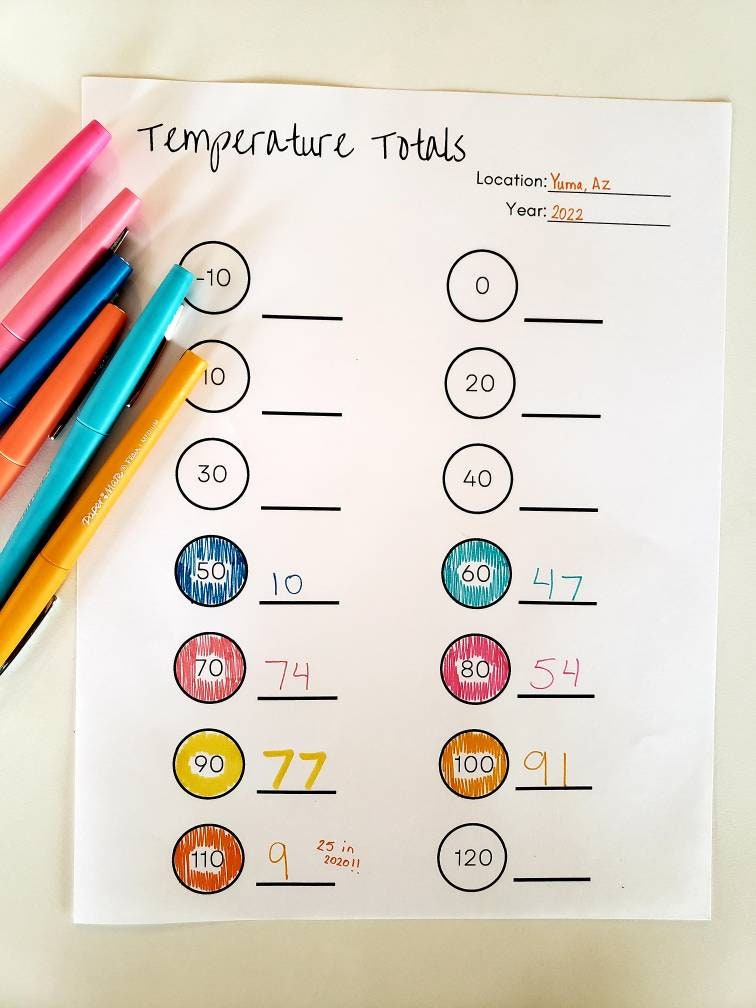 Temperature Totals
Location: Yuma, AZ
Year: 2022
-10
0
10
20
30
40
50 10
60 47
70 74
80 54
90 77
100 91
110 9 25 in
2020!!
120
Paper Mate